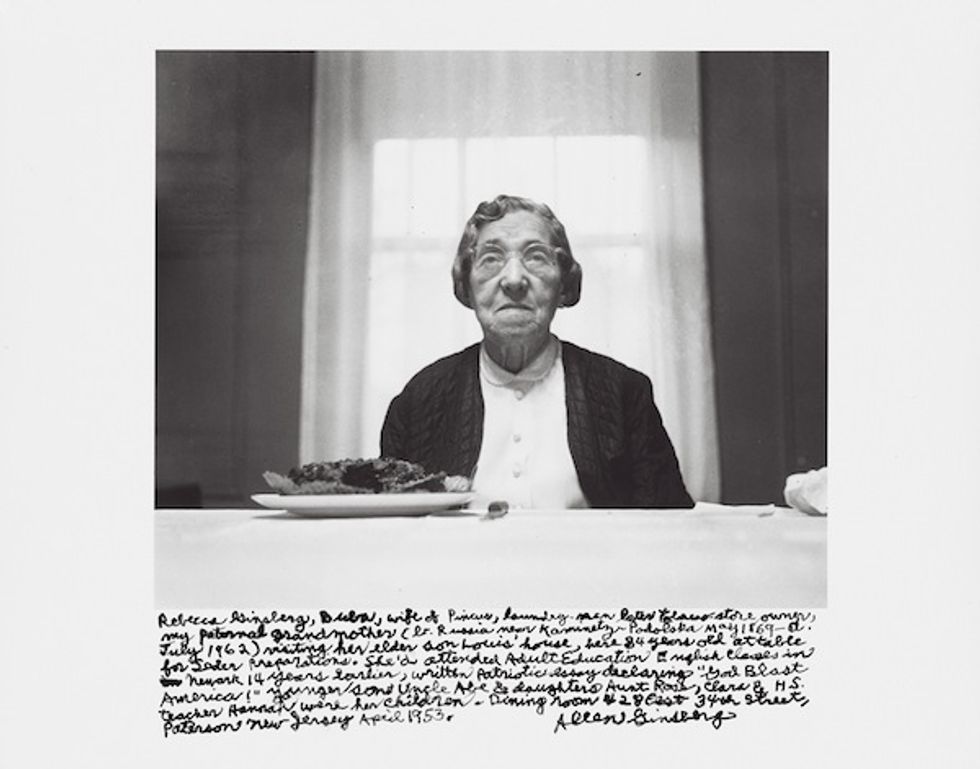 Rebecca Ginsberg, Buba, wife of Pincus, laundry-man later Tobacco store owner,
my paternal grandmother (b. Russia near Kaminetz-Podolska May 1869 – d.
July 1962) visiting her elder son Louis' house, here 84 years old at table
for Seder preparations. She'd attended Adult Education English Classes in
Newark 14 years earlier, written patriotic essay declaring "God Blast
America!" Younger son Uncle Abe & daughters Aunt Rose, Clara & H.S.
teacher Hannah, were her children. Dining room 288 East 34th Street,
Paterson New Jersey April 1953.
Allen Ginsberg